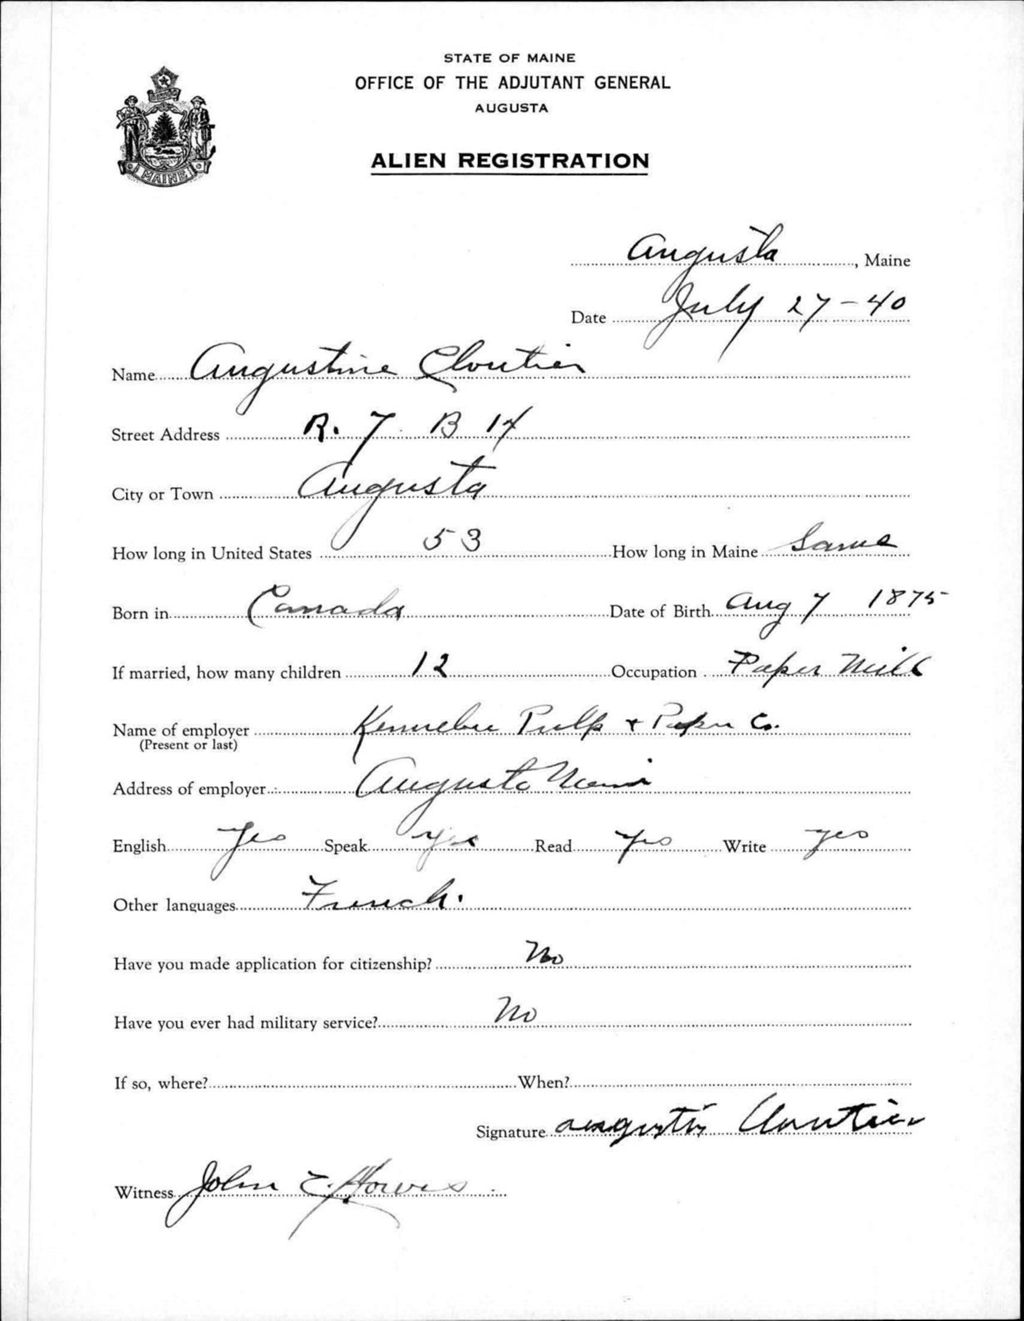 STATE OF MAINE
OFFICE OF THE ADJUTANT GENERAL
AUGUSTA
MAINE
ALIEN REGISTRATION
Augusta, Maine
Date July 27-40
Name Augustine Cloutier
Street Address R. 7 B 14
City or Town Augusta
How long in United States 53 How long in Maine Same
Born in Canada Date of Birth Aug 7 1875
If married, how many children 12 Occupation Paper Mill
Name of employer Kennebec Pulp + Paper Co.
(Present or last)
Address of employer Augusta Maine
English Yes Speak yes Read Yes Write yes
Other languages French.
Have you made application for citizenship? No
Have you ever had military service? No
If so, where? When?
Signature augustin Cloutier
Witness John E Howes